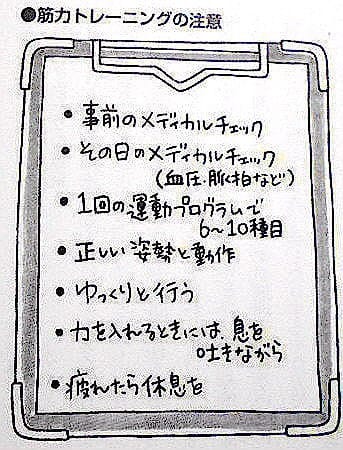 ●筋力トレーニングの注意
• 事前のメディカルチェック
• その日のメディカルチェック
(血圧・脈拍など)
• 1回の運動プログラムで
6〜10種目
• 正しい姿勢と動作
• ゆっくりと行う
• 力を入れるときには、息を
吐きながら
• 疲れたら休息を